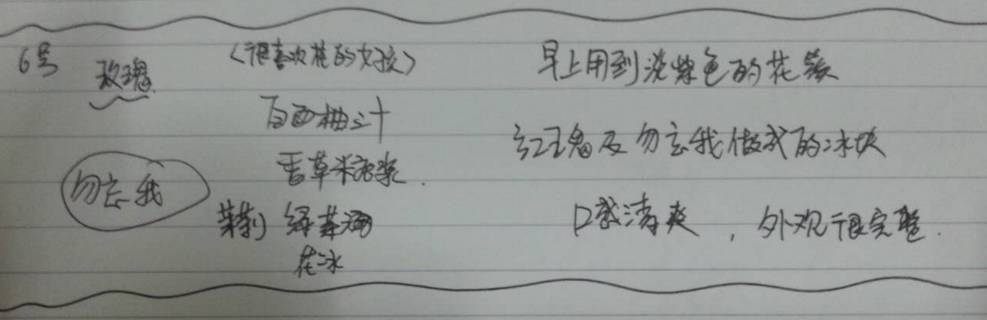 6号
玫瑰
勿忘我
〈很喜欢花的女孩〉
百西柚汁
香草米浆.
茉莉 绿茶酒
花冰
早上用到淡紫色的花
红玫瑰及勿忘我做成的冰块
口感清爽，外观很完整.